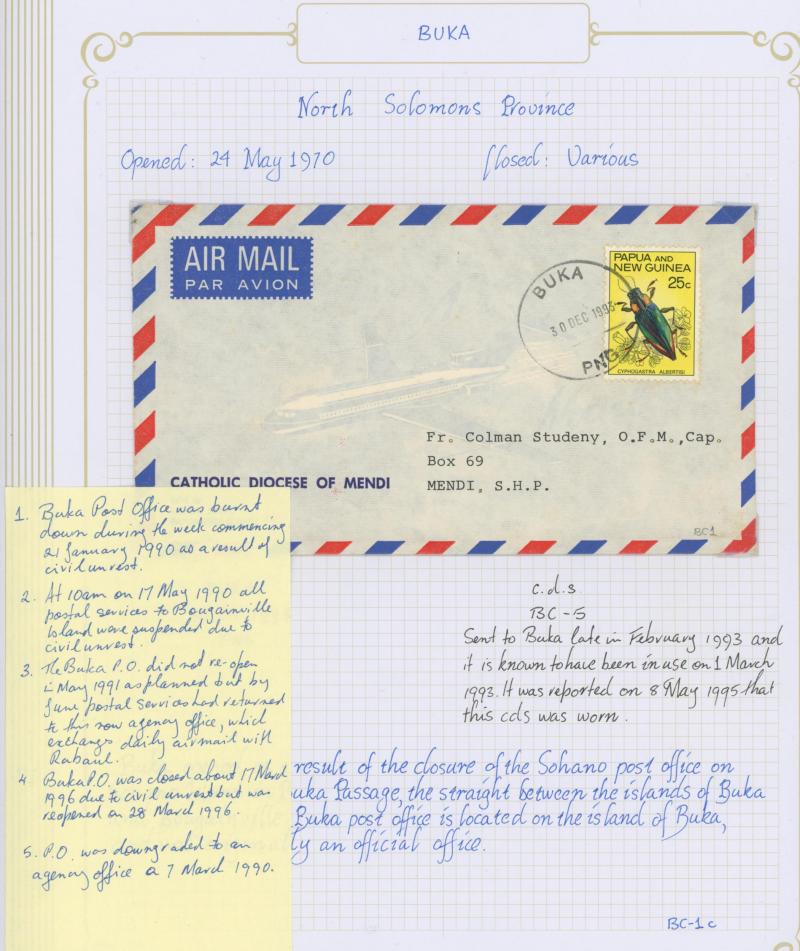 BUKA
North Solomons Province
Opened: 24 May 1970
Closed: Various
AIR MAIL
PAR AVION
BUKA
30 DEC 1993
PNG
PAPUA AND
NEW GUINEA
25c
CYPHOGASTRA ALBERTISI
Fr. Colman Studeny, O.F.M.,Cap.
Box 69
MENDI, S.H.P.
CATHOLIC DIOCESE OF MENDI
BC1
1. Buka Post Office was burnt
down during the week commencing
21 January 1990 as a result of
civil unrest.
2. At 10am on 17 May 1990 all
postal services to Bougainville
Island were suspended due to
civil unrest.
3. The Buka P.O. did not re-open
in May 1991 as planned but by
June postal services had returned
to this now agency office, which
exchanges daily airmail with
Rabaul.
4. Buka P.O. was closed about 17 March
1996 due to civil unrest but was
reopened on 28 March 1996.
5. P.O. was downgraded to an
agency office a 7 March 1990.
c.d.s
BC-5
Sent to Buka late in February 1993 and
it is known to have been in use on 1 March
1993. It was reported on 8 May 1995 that
this cds was worn.
result of the closure of the Sohano post office on
uka Passage, the straight between the islands of Buka
Buka post office is located on the island of Buka,
ly an official office.
BC-1c